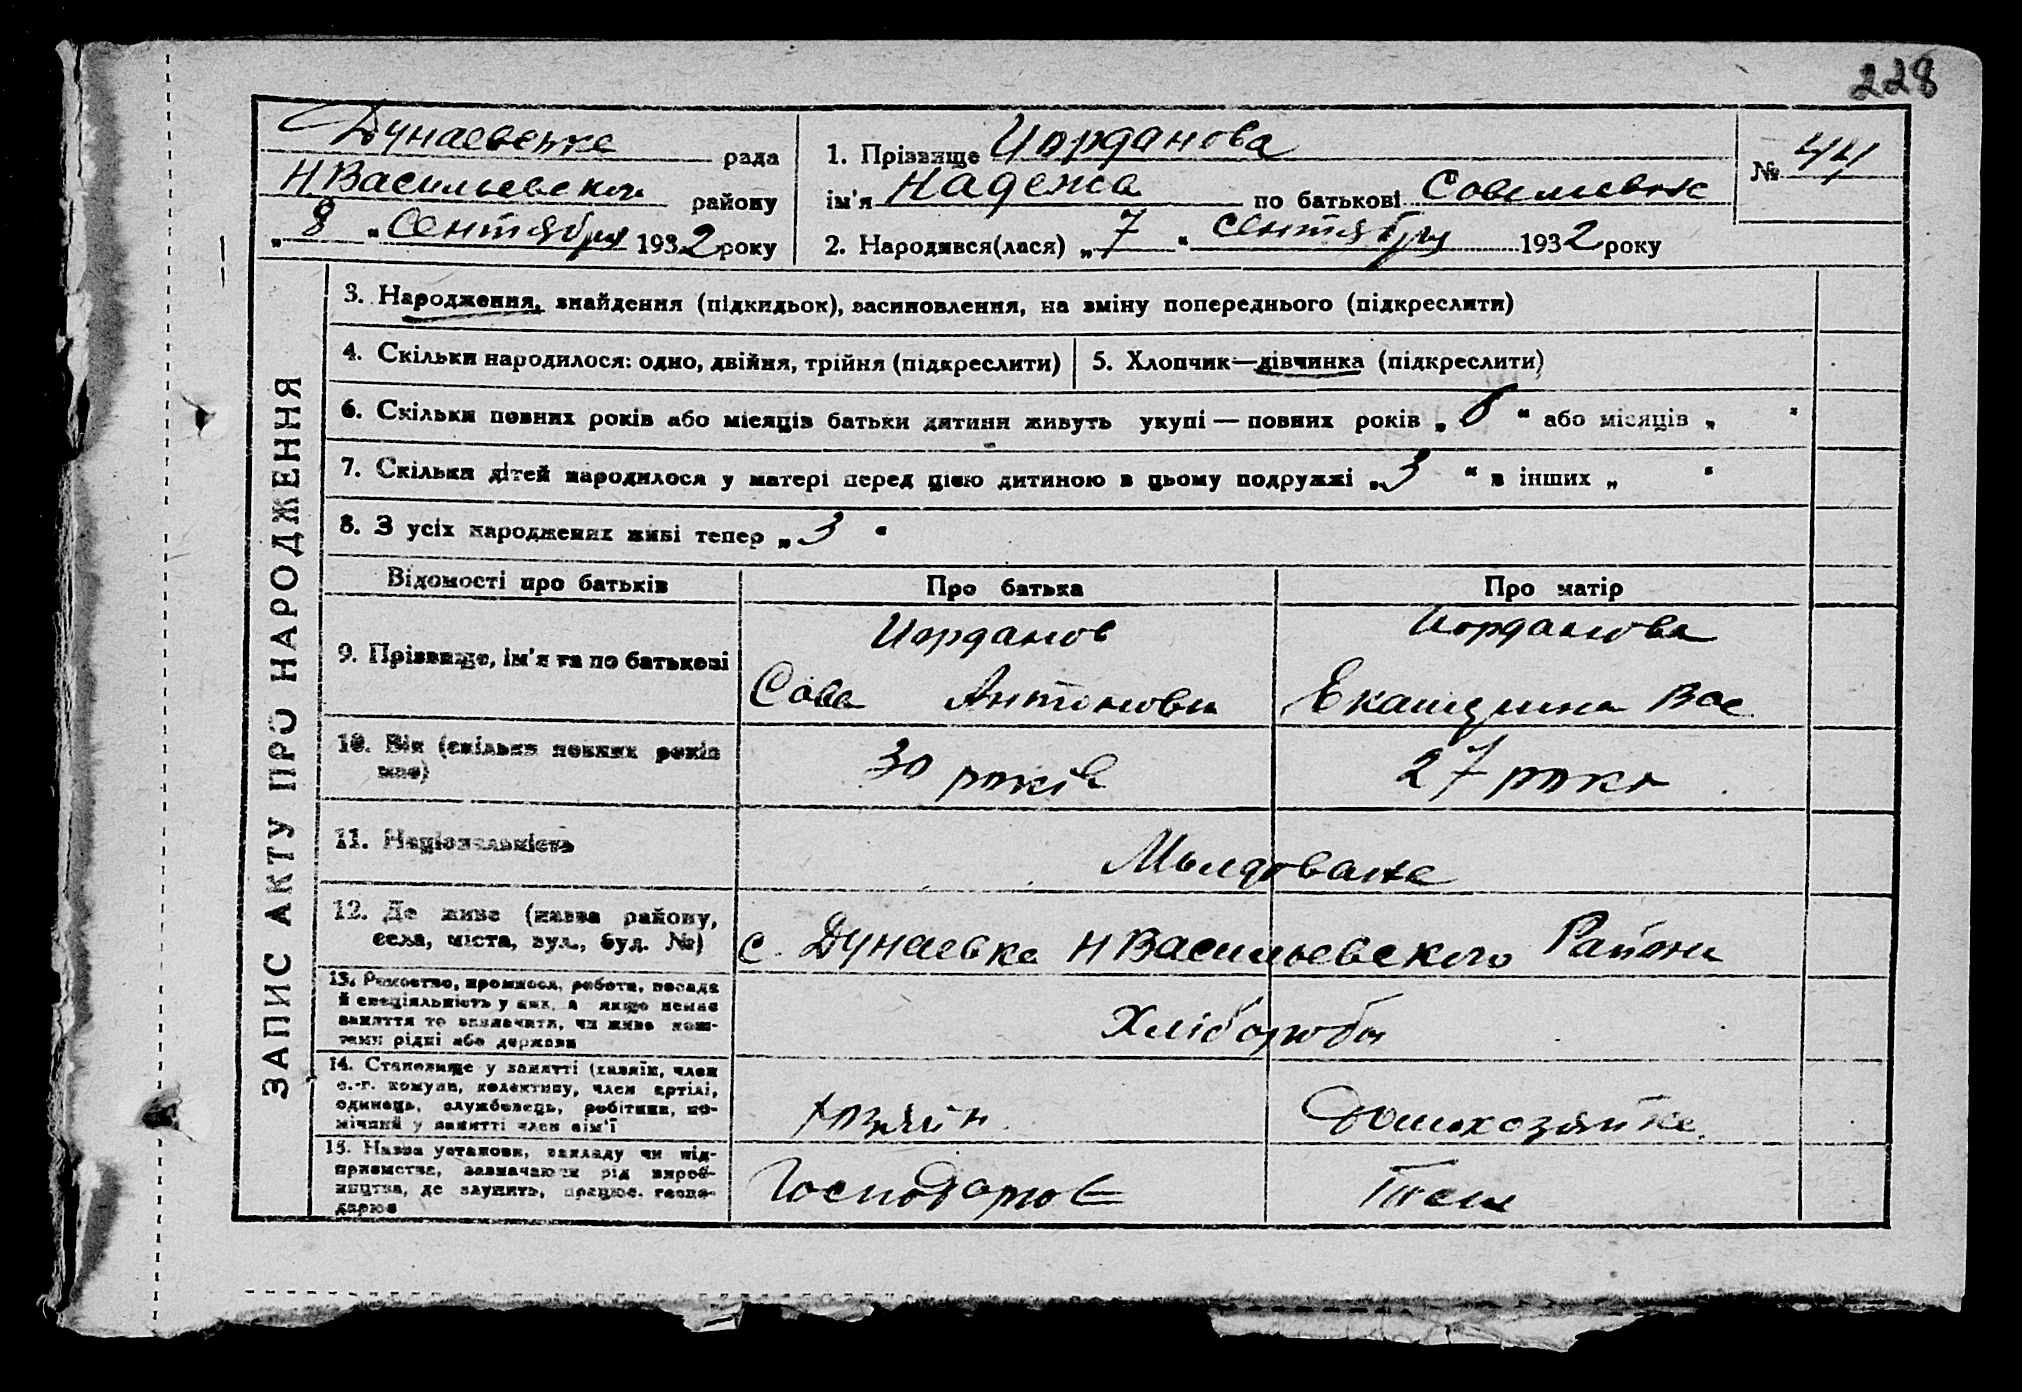 228
Дунаевська рада
Н Васильевског району
„8“ Сентября 1932 року
1. Прізвище Иорданова
ім'я Надежа по батькові
2. Народився(лася) „7“ сентября 1932 року
№ 44
ЗАПИС АКТУ ПРО НАРОДЖЕННЯ
3. Народження, знайдення (підкидьок), засиновлення, на зміну попереднього (підкреслити)
4. Скільки народилося: одно, двійня, трійня (підкреслити)
5. Хлопчик—дівчинка (підкреслити)
6. Скільки повних років або місяців батьки дитини живуть укупі — повних років „6“ або місяців „ “
7. Скільки дітей народилося у матері перед цією дитиною в цьому подружжі „3“ в інших „ “
8. З усіх народжених живі тепер „3“
Відомості про батьків
Про батька
Про матір
9. Прізвище, ім'я та по батькові
Иорданов
Сава Антонови
Иорданова
Екатерина Вас
10. Вік (скільки повних років
має)
30 років
27 року
11. Національність
Молдоване
12. Де живе (назва району,
села, міста, вул., буд. №)
с. Дунаевка Н Васильевского Району
13. Ремество, промисел, робота, посада
й спеціяльність у них, а якщо немає
заняття то зазначити, чи живе кош-
тами рідні або держави
Хлібороби
14. Становище у занятті (хазяїн, член
с.-г. комуни, колективу, член артілі,
одинець, службовець, робітник, по-
мічний у занятті член сім'ї
Хозяин
Домохозяйка
15. Назва установи, закладу чи під-
приємства, зазначаючи рід вироб-
ництва, де служить, працює, госпо-
дарює